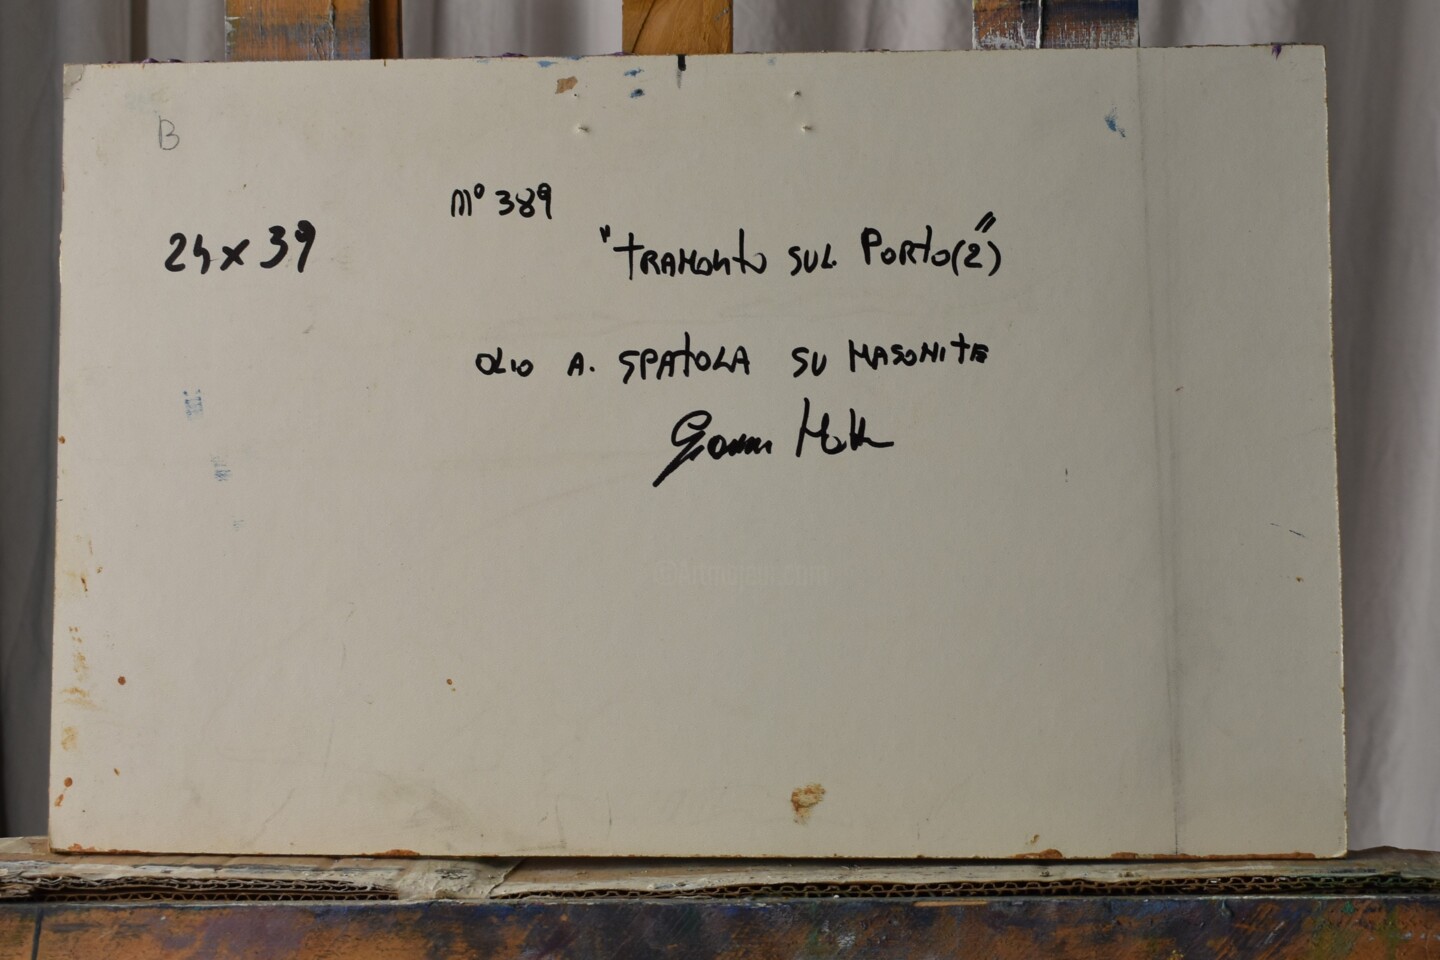 B
n° 389
24 x 39
"TRAMONTO SUL PORTO(2)"
OLIO A. SPATOLA SU MASONITE
Gianni Mott
©Artmajeur.com